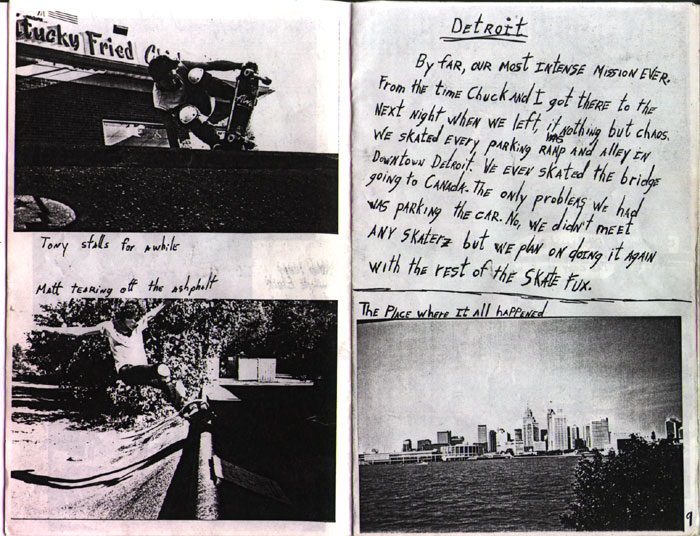 Kentucky Fried Chi
Tony stalls for awhile
Matt tearing off the ashphalt
Detroit
By far, our most intense mission ever.
From the time Chuck and I got there to the
next night when we left, it was nothing but chaos.
We skated every parking ramp and alley in
Downtown Detroit. We even skated the bridge
going to Canada. The only problem we had
was parking the car. No, we didn't meet
any skaterz but we plan on doing it again
with the rest of the Skate Fux.
The Place where it all happened
9